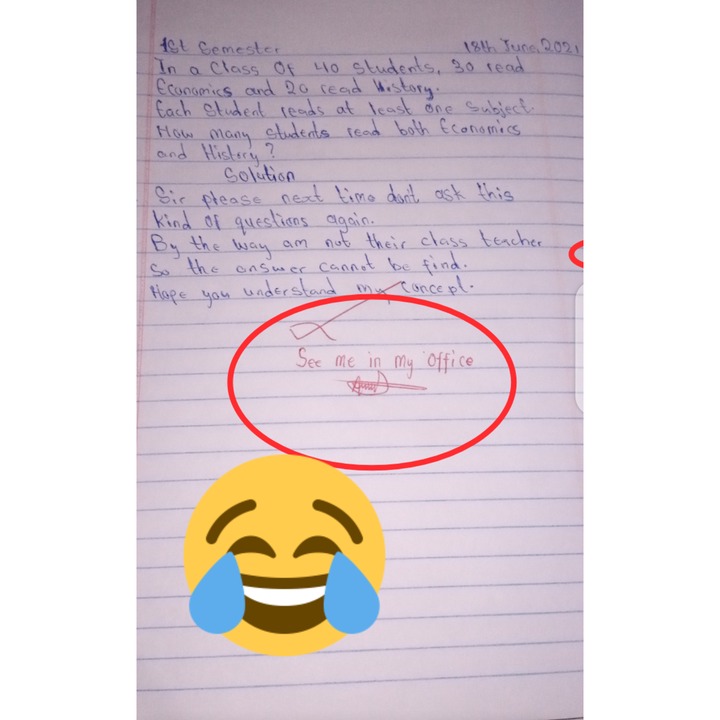 1st Semester 18th June, 2021
In a Class Of 40 students, 30 read
Economics and 20 read History.
Each Student reads at least one Subject
How many students read both Economics
and History?
Solution
Sir please next time don't ask this
kind of questions again.
By the way am not their class teacher
So the answer cannot be find.
Hope you understand my Concept.
See me in my Office